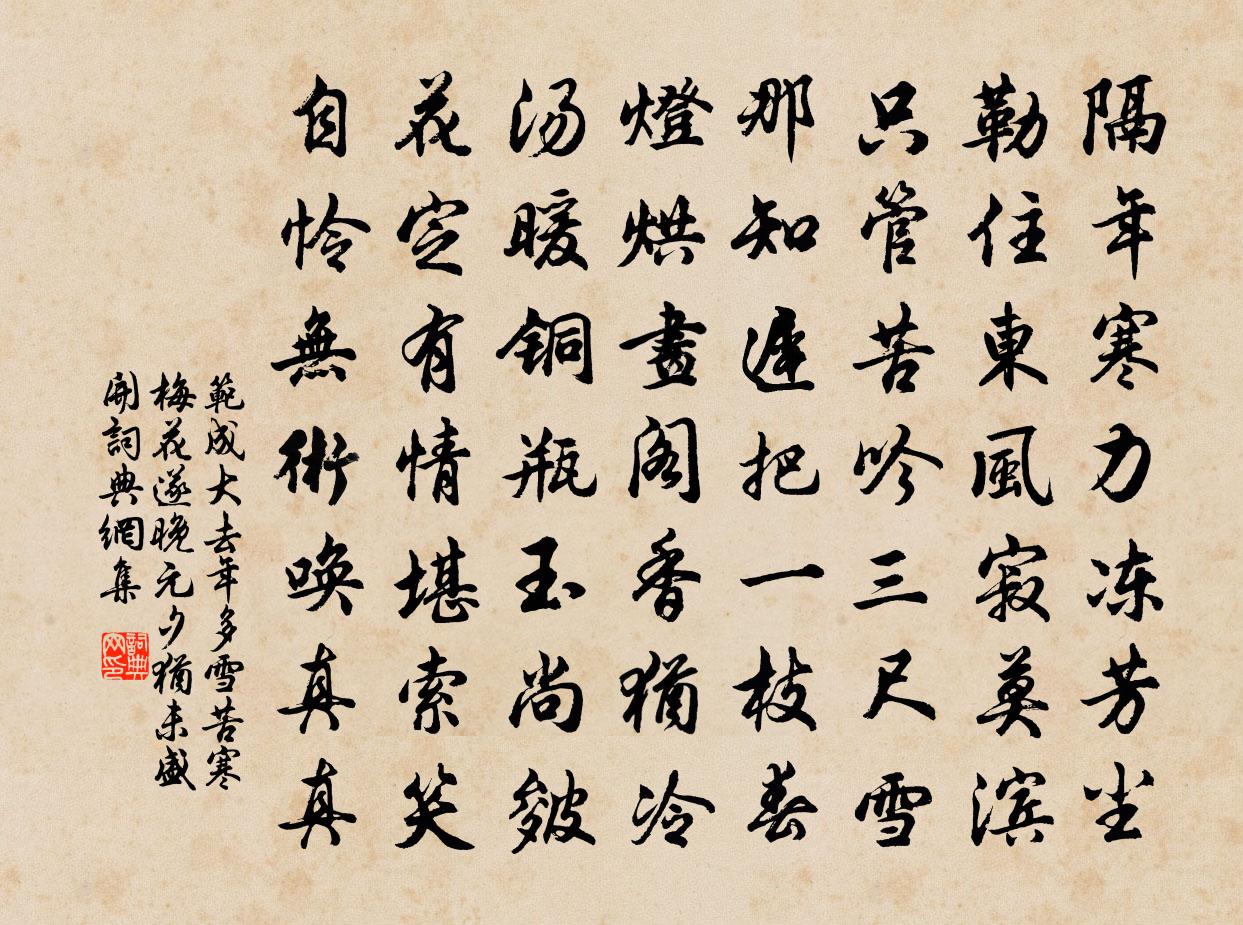 隔年寒力冻芳尘
勒住東風寂莫滨
只管苦吟三尺雪
那知遲把一枝春
燈烘畫阁香猶冷
汤暖铜瓶玉尚皴
花定有情堪索笑
自怜無術唤真真
範成大去年多雪苦寒
梅花遂晚元夕猶未盛
開詞典網集
詞典网印